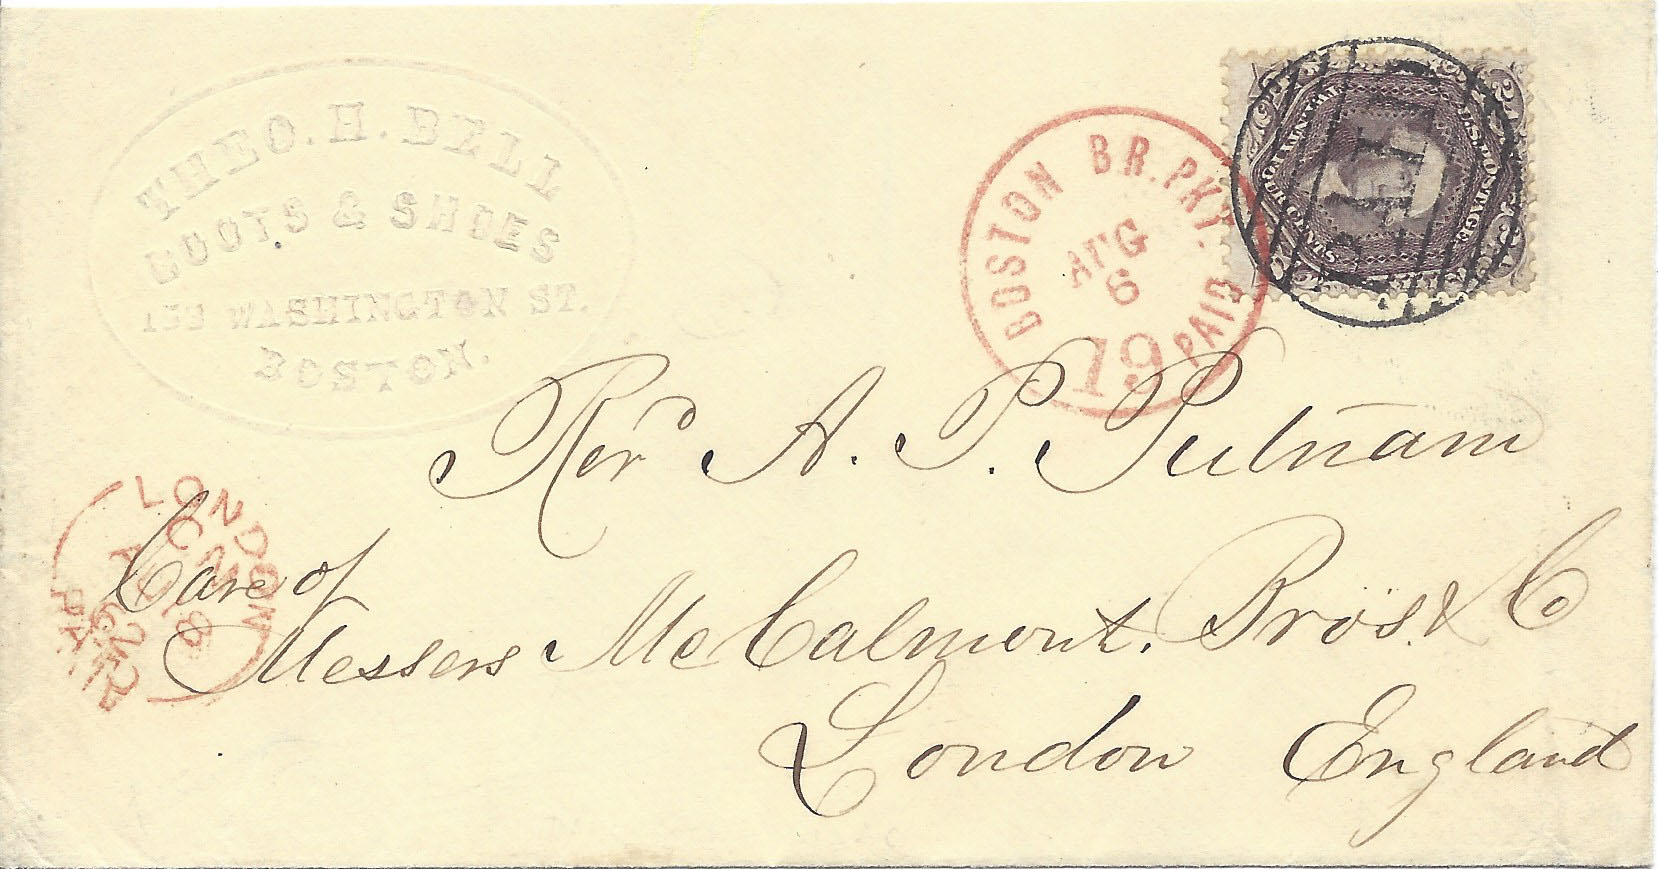 THEO. H. BELL
BOOTS & SHOES
WASHINGTON ST.
BOSTON.
BOSTON BR. PKT. PAID
AUG
6
19
U.S. POSTAGE
PAID
Rev'd A. P. Putnam
Care of
Messers McCalmont, Bros. & Co
London England
LONDON